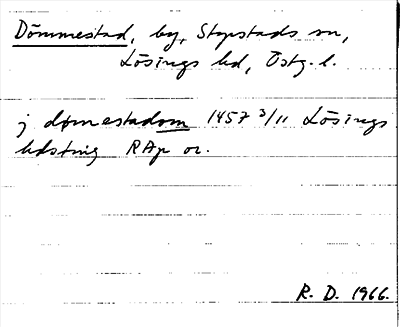 Dömmestad, by, Styrstads sn,
Lösings hd, Östg. l.
j dømestadom 1457 3/11 Lösings
hdsting RAp or.
R. D. 1966.